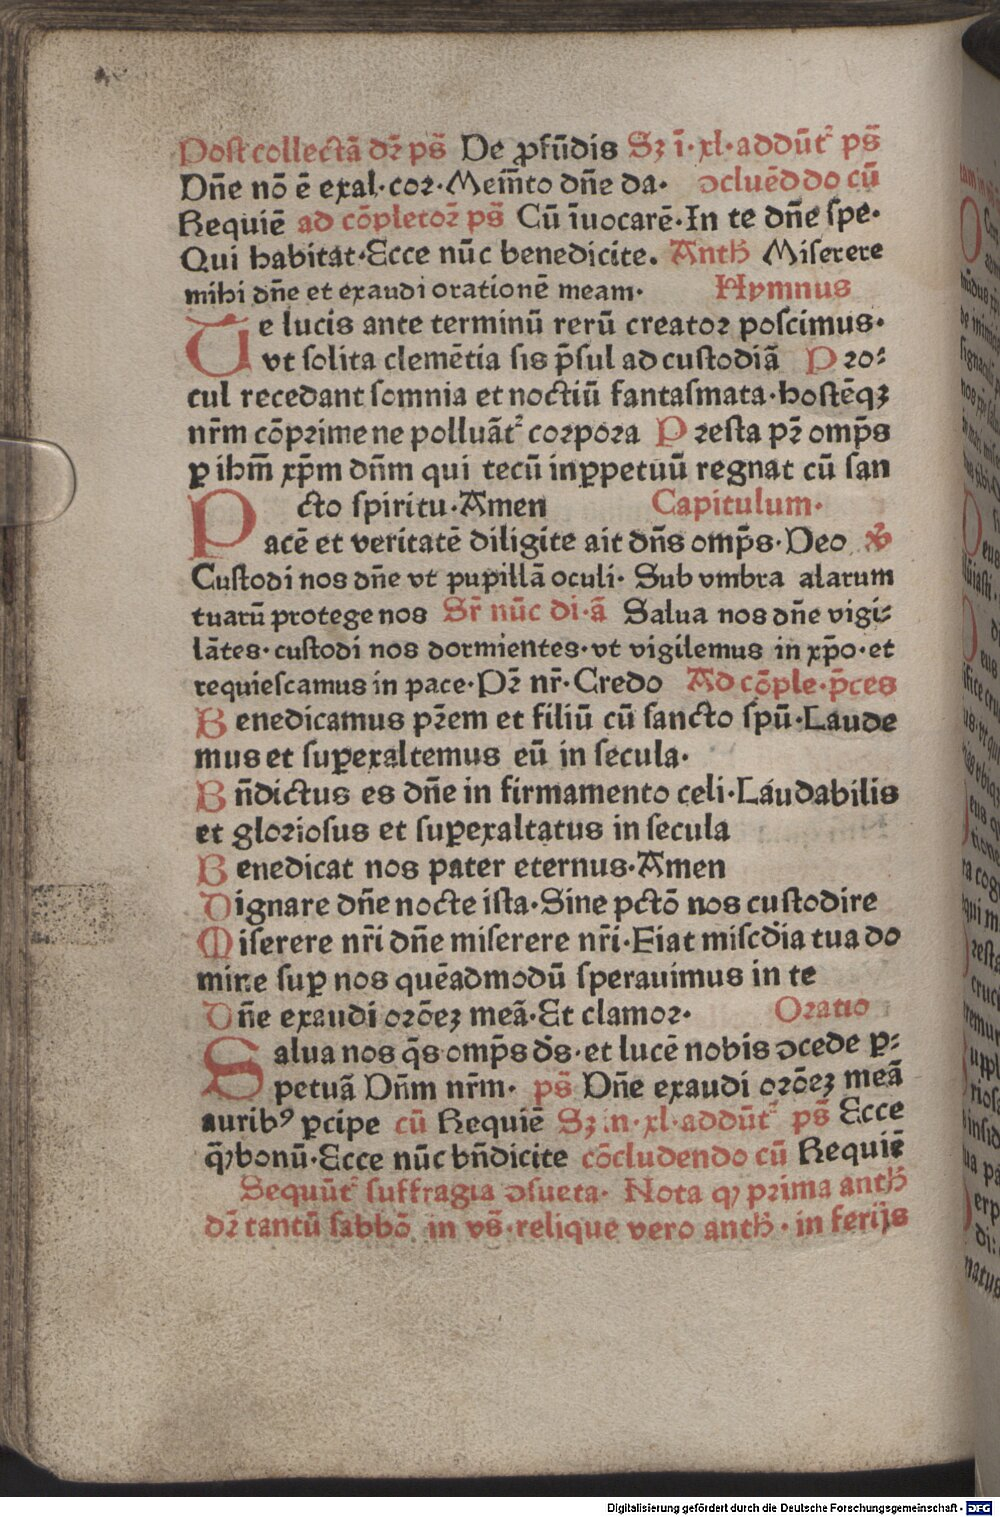 Post collectā dꝛ̄ ps̄ De ꝓfūdis Sꝫ ī·xl·addūt᷑ ps̄
Dn̄e nō ē exal·coꝛ·Mem̄to dn̄e da· ꝯcluēdo cū
Requiē ad cōpletoꝛ̄ ps̄ Cū īuocarē·In te dn̄e spe·
Qui habitat·Ecce nūc benedicite. Anth̄ Miserere
mihi dn̄e et exaudi orationē meam· Hymnus
Te lucis ante terminū rerū creatoꝛ poscimus·
vt solita clemētia sis p̄sul ad custodiā Pꝛo⸗
cul recedant somnia et noctiū fantasmata·hostēqꝫ
nr̄m cōpꝛime ne polluāt᷑ coꝛpoꝛa Pꝛesta pꝛ̄ omp̄s
ꝑ ihm̄ xp̄m dn̄m qui tecū inꝑpetuū regnat cū san
cto spiritu·Amen Capitulum·
Pacē et veritatē diligite ait dn̄s omp̄s·Deo ꝟ
Custodi nos dn̄e vt pupillā oculi· Sub vmbra alarum
tuarū protege nos Sr̄ nūc di·ā Salua nos dn̄e vigi⸗
lātes·custodi nos dormientes·vt vigilemus in xp̄o·et
requiescamus in pace·Pꝛ̄ nr̄·Credo Ad cōple·p̄ces
Benedicamus pꝛ̄em et filiū cū sancto spū·Laude
mus et suꝑexaltemus eū in secula·
Bn̄dictus es dn̄e in firmamento celi·Laudabilis
et gloꝛiosus et suꝑexaltatus in secula
Benedicat nos pater eternus·Amen
Dignare dn̄e nocte ista·Sine pctō nos custodire
Miserere nr̄i dn̄e miserere nr̄i·Fiat misc̄dia tua do
mine suꝑ nos quēadmodū sperauimus in te
Dn̄e exaudi oꝛōeꝫ meā·Et clamoꝛ· Oꝛatio
Salua nos q̄s omp̄s ds̄·et lucē nobis ꝯcede ꝑ⸗
petuā Dn̄m nr̄m· ps̄ Dn̄e exaudi oꝛōeꝫ meā
auribꝰ ꝑcipe cū Requiē Sꝫ in·xl·addūt᷑ ps̄ Ecce
qͫbonū·Ecce nūc bn̄dicite cōcludendo cū Requiē
Sequūt᷑ suffragia ꝯsueta· Nota ꝙ pꝛima anth̄
dꝛ̄ tantū sabbō in vs̄·relique vero anth̄·in ferijs
Digitalisierung gefördert durch die Deutsche Forschungsgemeinschaft - DFG